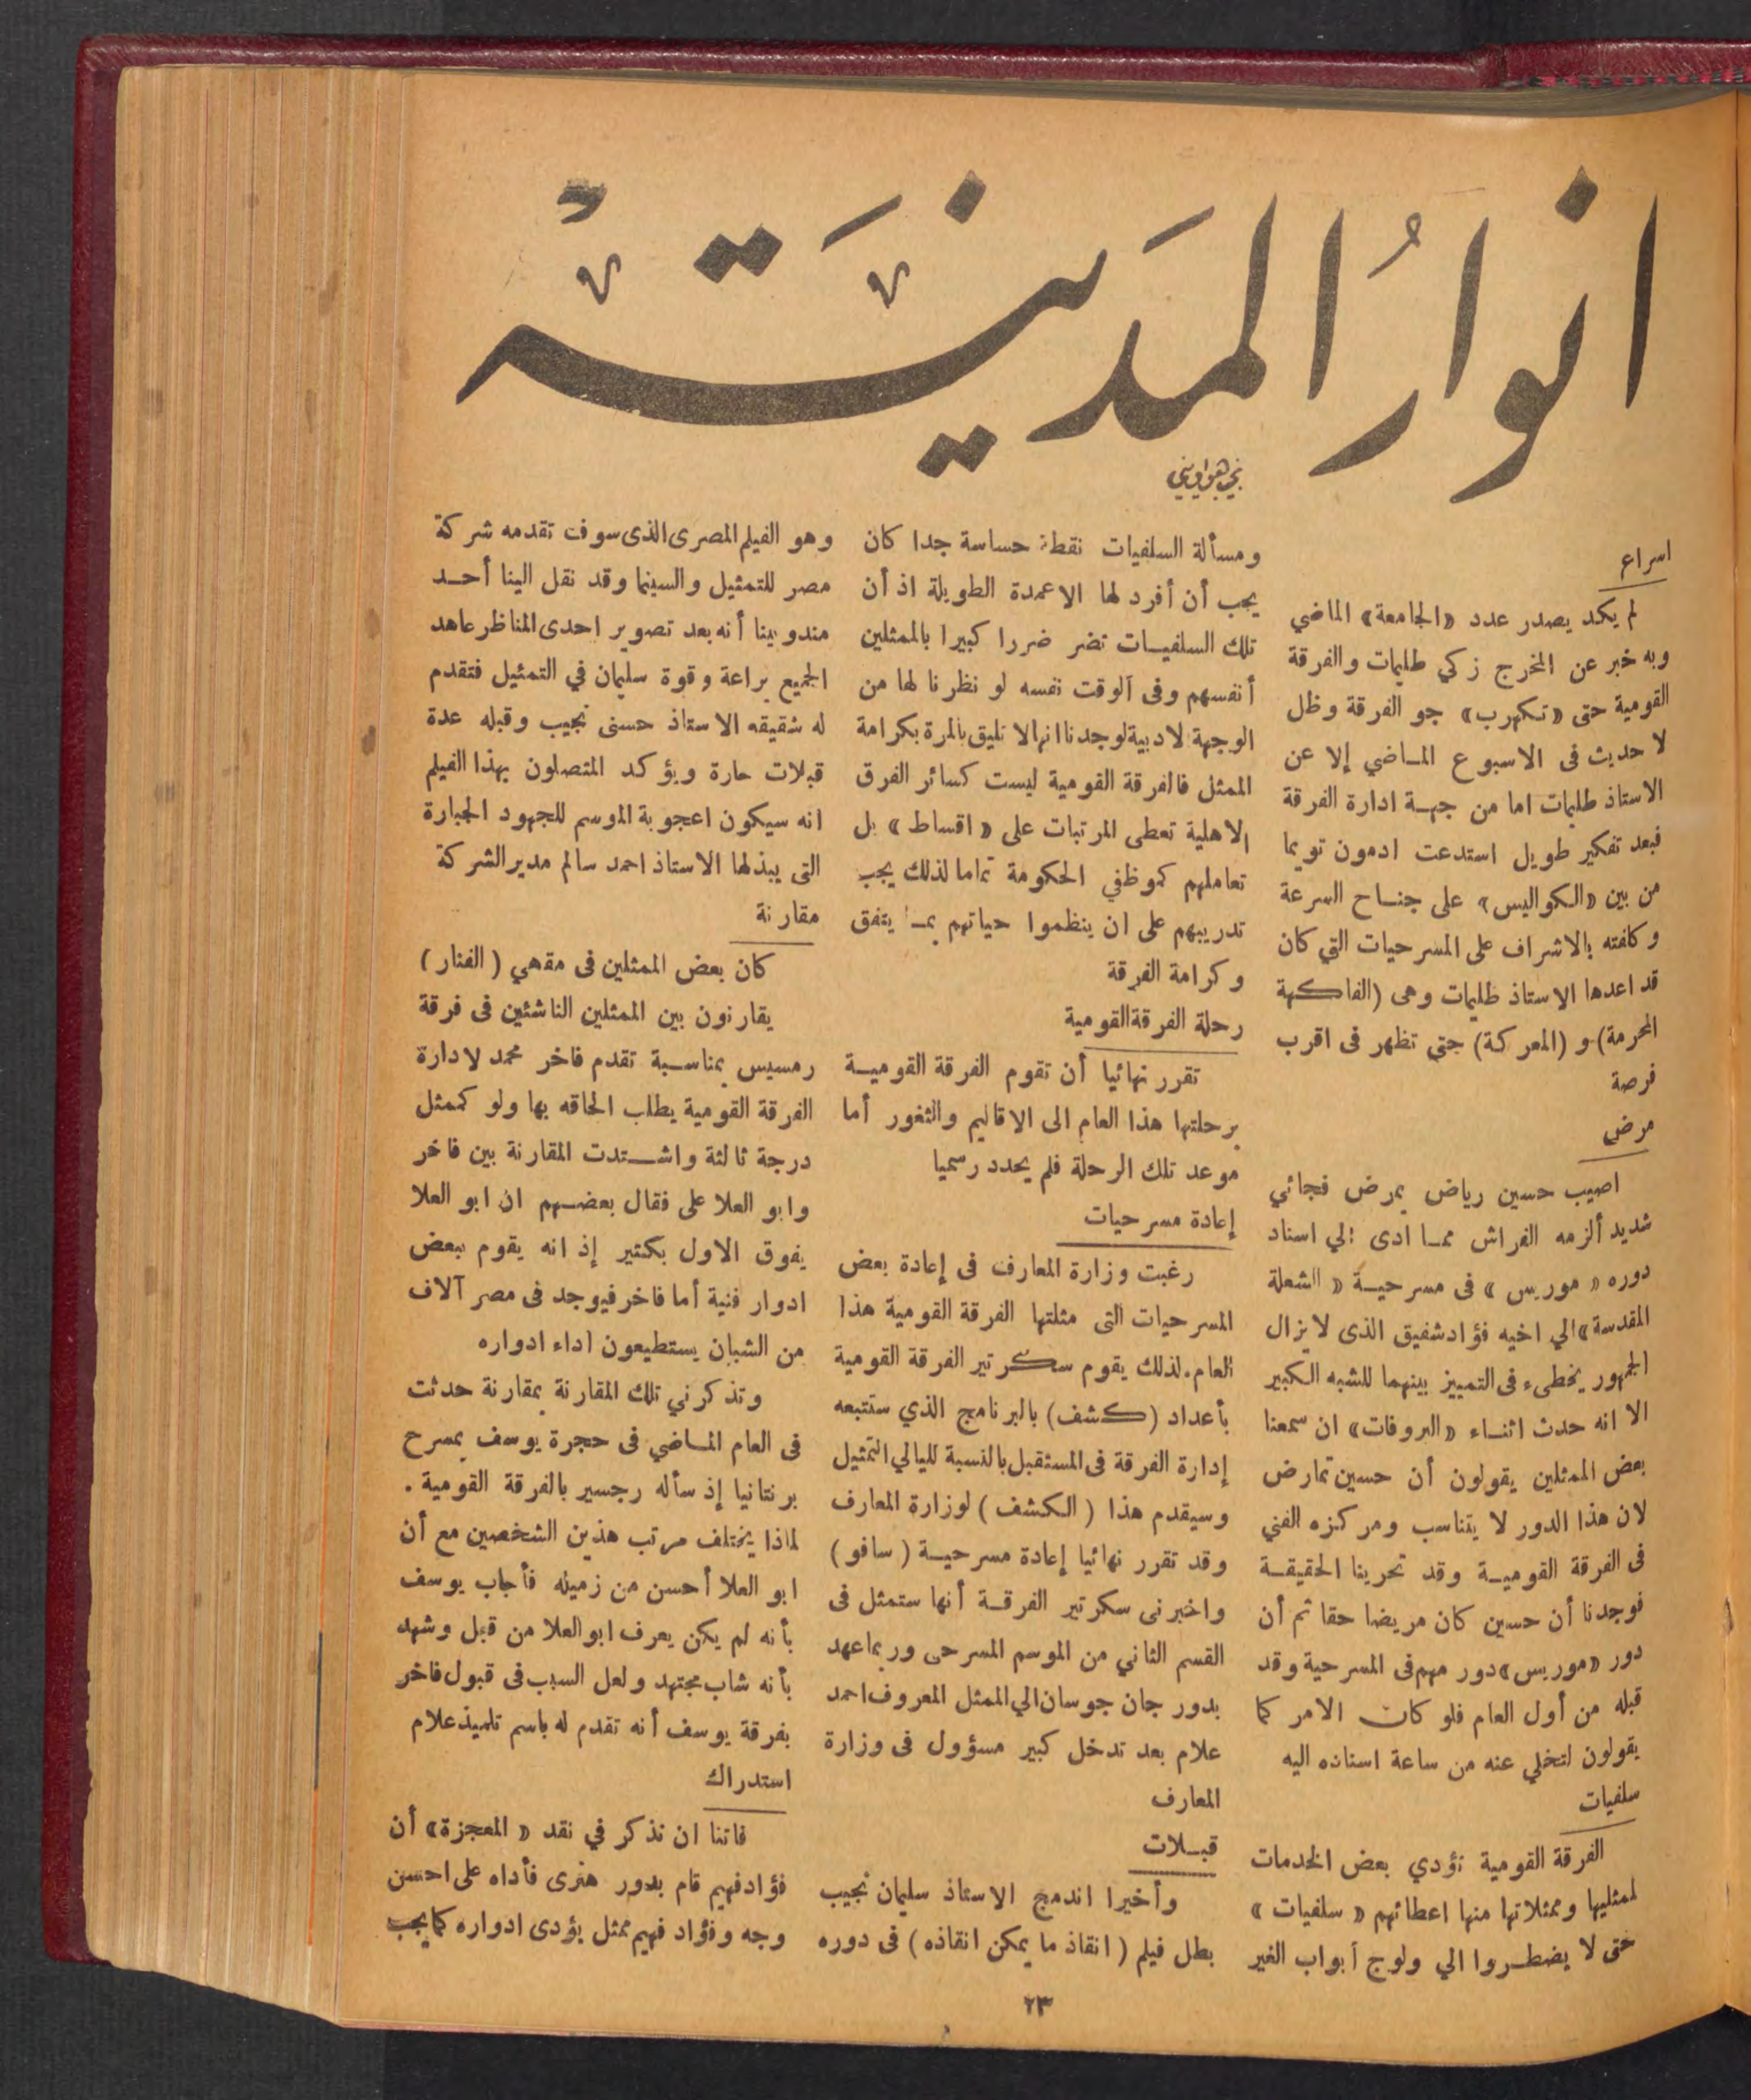 انوار المدينة
اسراع
لم يكد يصدر عدد «الجامعة» الماضي
وبه خبر عن المخرج زكي طليمات والفرقة
القومية حتى «تكهرب» جو الفرقة وظل
لا حديث فى الاسبوع المـاضي إلا عن
الاستاذ طليمات اما من جهـة ادارة الفرقة
فبعد تفكير طويل استدعت ادمون تويما
من بين «الكواليس» على جنـاح السرعة
وكلفته بالاشراف على المسرحيات التي كان
قد اعدها الاستاذ طليمات وهى (الفاكهة
المحرمة) و (المعركة) حتى تظهر فى اقرب
فرصة
مرض
اصيب حسين رياض بمرض فجائي
شديد ألزمه الفراش ممـا ادى الي اسناد
دوره « موريس » فى مسرحيـة « الشعلة
المقدسة» الي اخيه فؤاد شفيق الذى لا يزال
الجمهور يخطىء فى التمييز بينهما للشبه الكبير
الا انه حدث اثنـاء «البروفات» ان سمعنا
بعض الممثلين يقولون أن حسين تمارض
لان هذا الدور لا يتناسب ومركزه الفني
فى الفرقة القوميـة وقد تحرينا الحقيقـة
فوجدنا أن حسين كان مريضا حقا ثم أن
دور «موريس» دور مهم فى المسرحية وقد
قبله من أول العام فلو كان الامر كما
يقولون لتخلي عنه من ساعة اسناده اليه
سلفيات
الفرقة القومية تؤدي بعض الخدمات
لممثليها وممثلاتها منها اعطائهم « سلفيات »
حتى لا يضطـروا الي ولوج أبواب الغير
ومسألة السلفيات نقطة حساسة جدا كان
يجب أن أفرد لها الاعمدة الطويلة اذ أن
تلك السلفيـات تضر ضررا كبيرا بالممثلين
أنفسهم وفى الوقت نفسه لو نظرنا لها من
الوجهة لادبية لوجدنا انها لا تليق بالمرة بكرامة
الممثل فالفرقة القومية ليست كسائر الفرق
الاهلية تعطى المرتبات على « اقساط » بل
تعاملهم كموظفي الحكومة تماما لذلك يجب
تدريبهم على ان ينظموا حياتهم بمـا يتفق
وكرامة الفرقة
رحلة الفرقة القومية
تقرر نهائيا أن تقوم الفرقة القوميـة
برحلتها هذا العام الى الاقاليم والثغور أما
موعد تلك الرحلة فلم يحدد رسميا
إعادة مسرحيات
رغبت وزارة المعارف فى إعادة بعض
المسرحيات التى مثلتها الفرقة القومية هذا
العام. لذلك يقوم سكرتير الفرقة القومية
بأعداد (كشف) بالبرنامج الذي ستتبعه
إدارة الفرقة فى المستقبل بالنسبة لليالي التمثيل
وسيقدم هذا ( الكشف ) لوزارة المعارف
وقد تقرر نهائيا إعادة مسرحيـة ( سافو )
واخبرنى سكرتير الفرقـة أنها ستمثل فى
القسم الثاني من الموسم المسرحى وربما عهد
بدور جان جوسان الي الممثل المعروف احمد
علام بعد تدخل كبير مسؤول فى وزارة
المعارف
قبـلات
وأخيرا اندمج الاستاذ سليمان نجيب
بطل فيلم ( انقاذ ما يمكن انقاذه ) فى دوره
وهو الفيلم المصرى الذى سوف تقدمه شركة
مصر للتمثيل والسينما وقد نقل الينا أحـد
مندوبينا أنه بعد تصوير احدى المناظر عاهد
الجميع براعة وقوة سليمان في التمثيل فتقدم
له شقيقه الاستاذ حسنى نجيب وقبله عدة
قبلات حارة ويؤكد المتصلون بهذا الفيلم
انه سيكون اعجوبة الموسم للجهود الجبارة
التى يبذلها الاستاذ احمد سالم مدير الشركة
مقارنة
كان بعض الممثلين فى مقهي ( الفنار )
يقارنون بين الممثلين الناشئين فى فرقة
رمسيس بمناسـبة تقدم فاخر محمد لادارة
الفرقة القومية يطلب الحاقه بها ولو كممثل
درجة ثالثة واشـتدت المقارنة بين فاخر
وابو العلا على فقال بعضـهم ان ابو العلا
يفوق الاول بكثير إذ انه يقوم ببعض
ادوار فنية أما فاخر فيوجد فى مصر آلاف
من الشبان يستطيعون اداء ادواره
وتذكرني تلك المقارنة بمقارنة حدثت
فى العام المـاضي فى حجرة يوسف بمسرح
برنتانيا إذ سأله رجسير بالفرقة القومية .
لماذا يختلف مرتب هذين الشخصين مع أن
ابو العلا أحسن من زميله فأجاب يوسف
بأنه لم يكن يعرف ابو العلا من قبل وشهد
بأنه شاب مجتهد ولعل السبب فى قبول فاخر
بفرقة يوسف أنه تقدم له باسم تلميذ علام
استدراك
فاتنا ان نذكر في نقد « المعجزة» أن
فؤاد فهيم قام بدور هنرى فأداه على احسن
وجه وفؤاد فهيم ممثل يؤدى ادواره كما يجب
٢٣